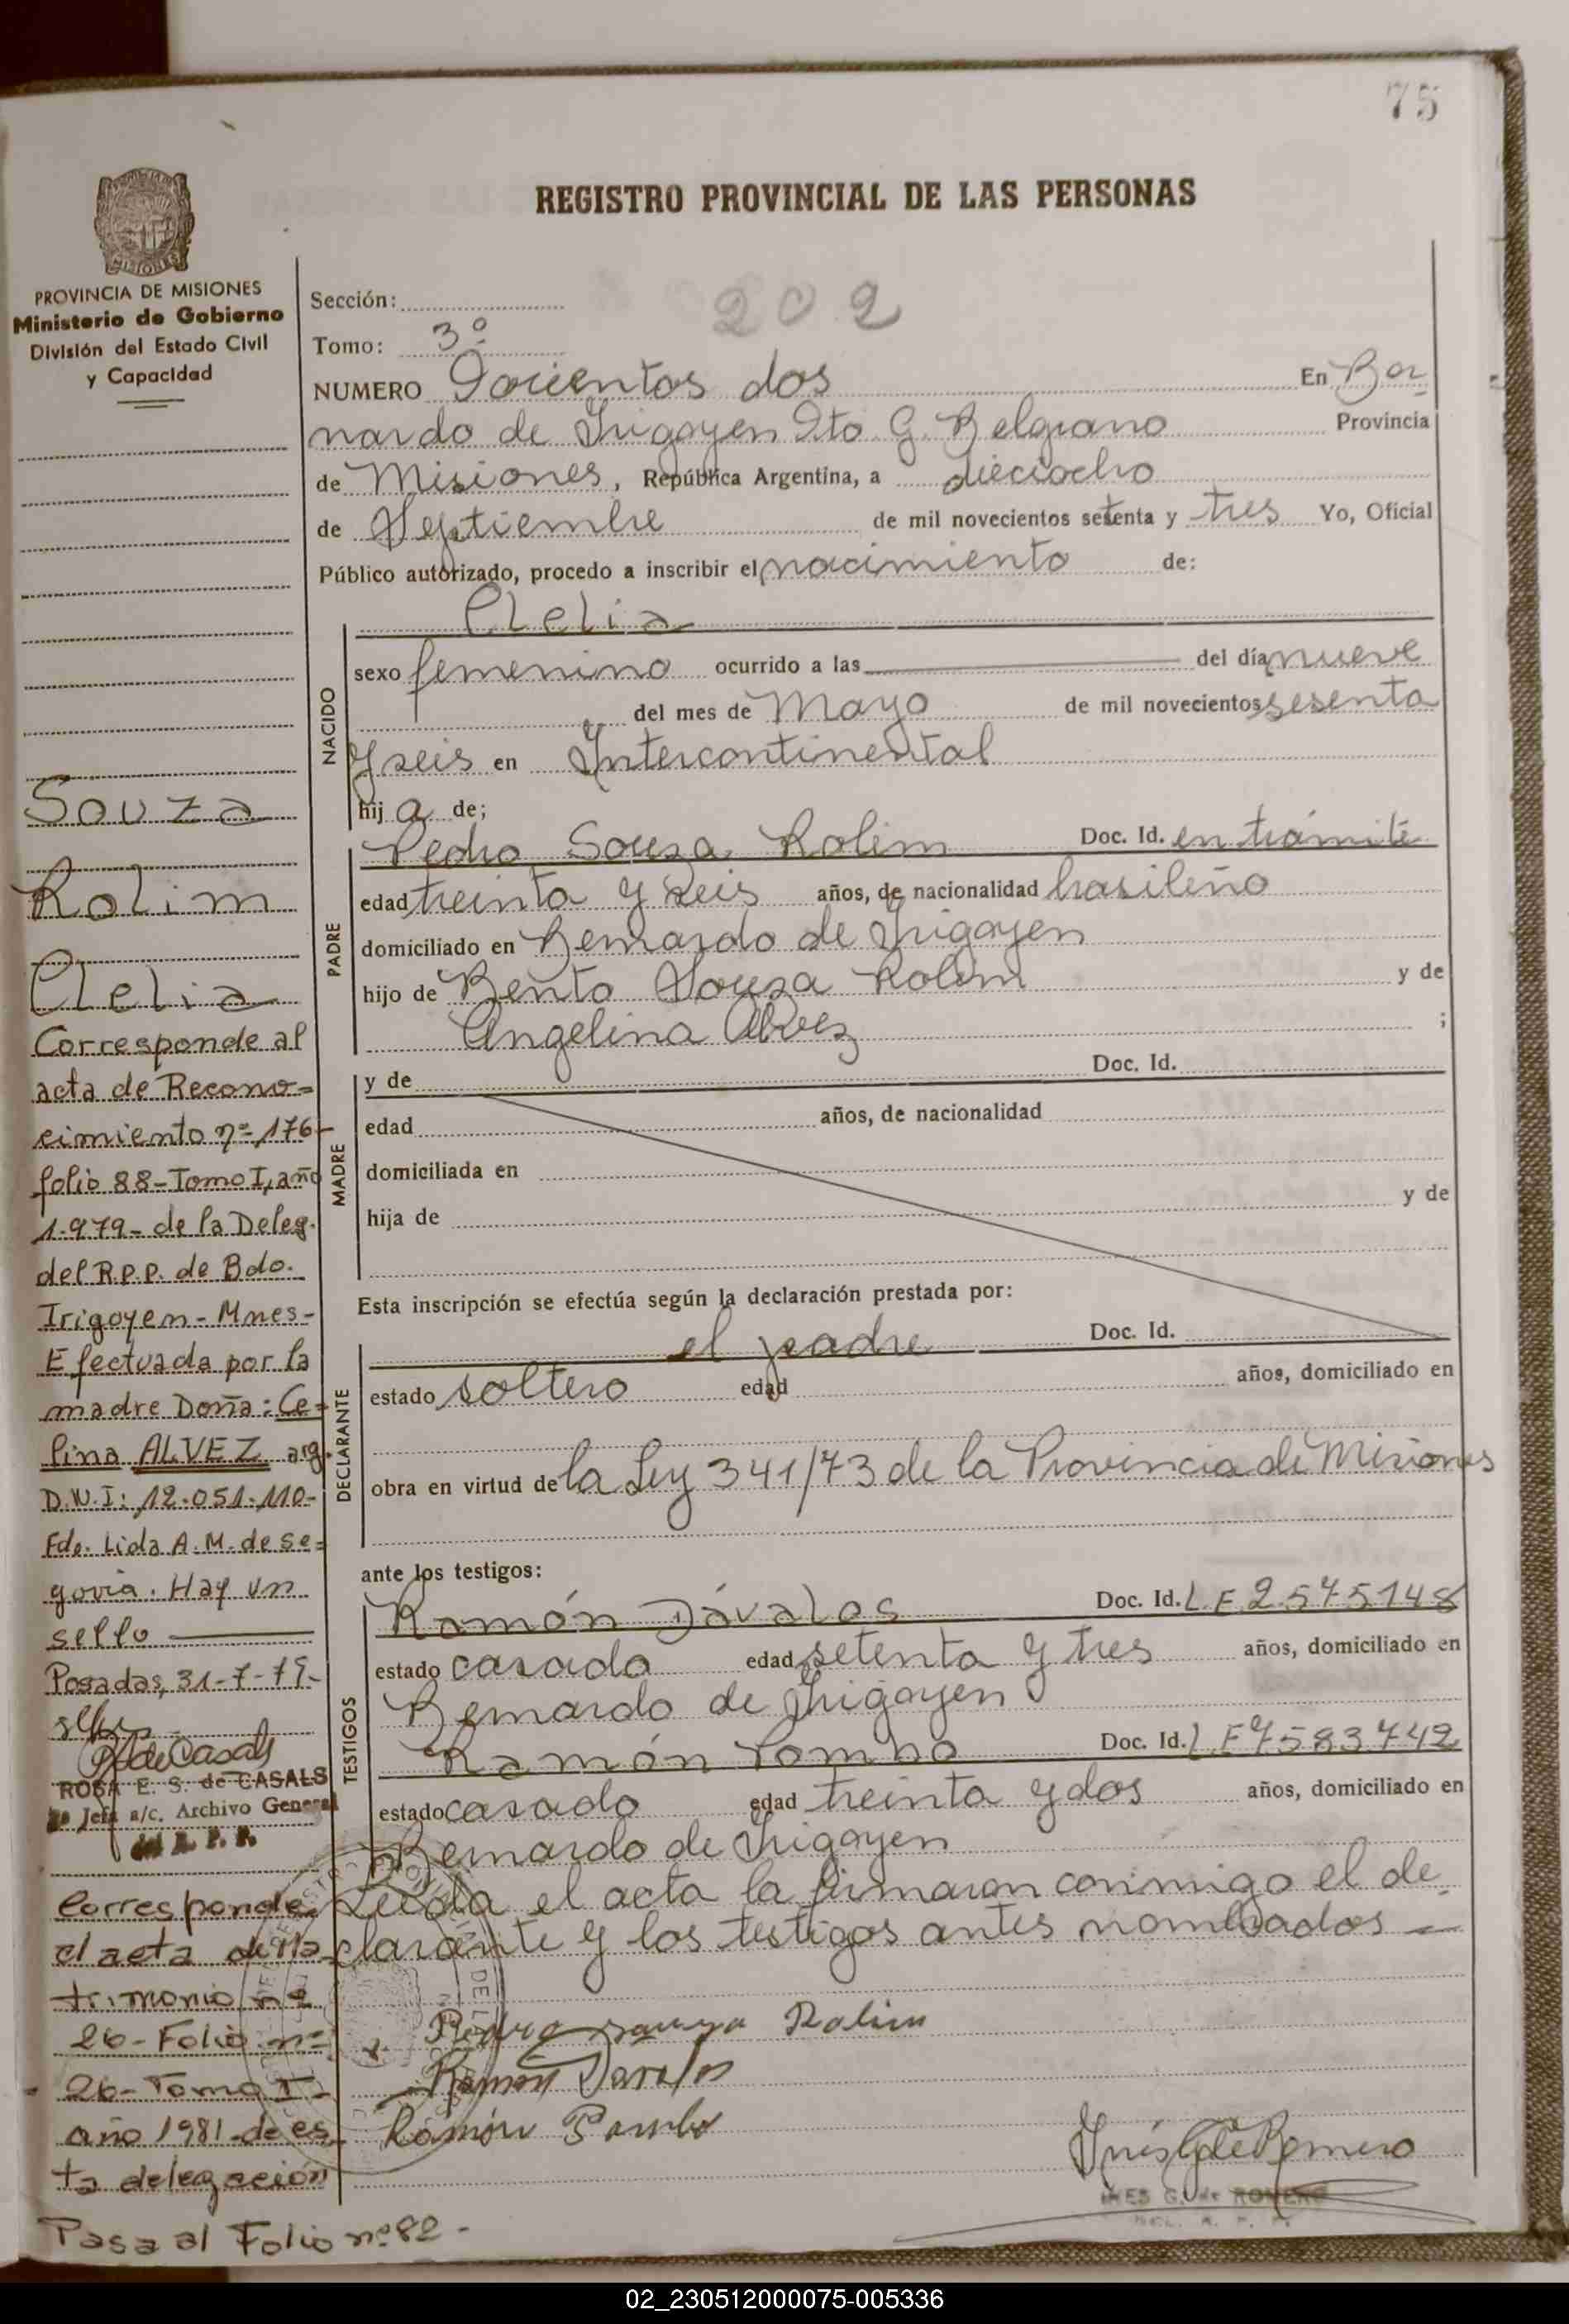 75
REGISTRO PROVINCIAL DE LAS PERSONAS
MISIONES
PROVINCIA DE MISIONES
Ministerio de Gobierno
División del Estado Civil
y Capacidad
Souza
Rolim
Clelia
Corresponde al
acta de Recono=
cimiento nº 176-
folio 88-Tomo I, año
1.979- de la Deleg.
del R.P.P. de Bdo.
Irigoyen- Mnes-
Efectuada por la
madre Doña: Ce=
lina ALVEZ arg.
D.N.I: 12.051.110-
Fdo. Lida A.M. de Se=
govia. Hay un
sello
Posadas, 31-7-79-
ROSA E. S. de CASALS
Jefa a/c. Archivo General
del R. P. P.
Corresponde
el acta de Ma-
trimonio nº
26- Folio nº
26- Tomo I-
año 1981-de es
ta delegación
Pasa al Folio nº 82-
Sección:
202
Tomo: 3º
NUMERO Docientos dos En Ber
nardo de Irigoyen Dto G. Belgrano Provincia
de Misiones, República Argentina, a dieciocho
de Septiembre de mil novecientos setenta y tres Yo, Oficial
Público autorizado, procedo a inscribir el nacimiento de:
Clelia
NACIDO
sexo femenino ocurrido a las del día nueve
del mes de Mayo de mil novecientos sesenta
y seis en Intercontinental
hija de;
PADRE
Pedro Souza Rolim Doc. Id. en trámite
edad treinta y seis años, de nacionalidad brasileño
domiciliado en Bernardo de Irigoyen
hijo de Bento Souza Rolim y de
Angelina Alvez ;
MADRE
y de Doc. Id.
edad años, de nacionalidad
domiciliada en
hija de y de
Esta inscripción se efectúa según la declaración prestada por:
DECLARANTE
el padre Doc. Id.
estado soltero edad años, domiciliado en
obra en virtud de la Ley 341/73 de la Provincia de Misiones
ante los testigos:
TESTIGOS
Ramón Dávalos Doc. Id. L.E. 2575148
estado casado edad setenta y tres años, domiciliado en
Bernardo de Irigoyen
Ramón Doc. Id. L.E 7583742
estado casado edad treinta y dos años, domiciliado en
Bernardo de Irigoyen
Leida el acta la firmaron conmigo el de
clarante y los testigos antes nombrados
Pedro Souza Rolim
Ramón Dávalos
Ramón
Inés G de Romero
INES G. de ROMERO
02_230512000075-005336